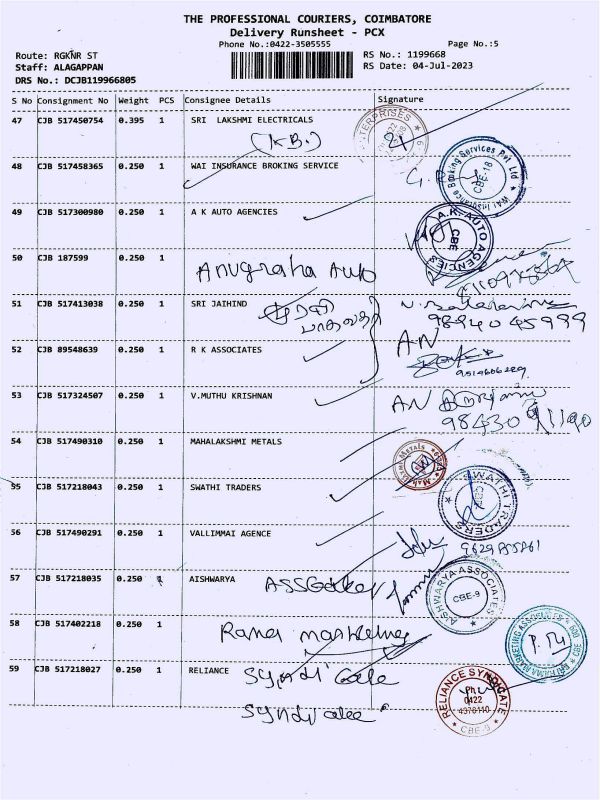 THE PROFESSIONAL COURIERS, COIMBATORE
Delivery Runsheet - PCX
Phone No.:0422-3505555
Page No.:5
Route: RGKNR ST
RS No.: 1199668
Staff: ALAGAPPAN
RS Date: 04-Jul-2023
DRS No.: DCJB119966805
S No Consignment No Weight PCS Consignee Details Signature
47 CJB 517450754 0.395 1 SRI LAKSHMI ELECTRICALS
(K.B.)
48 CJB 517458365 0.250 1 WAI INSURANCE BROKING SERVICE
WAI Insurance Broking Services Pvt. Ltd
CBE-18
49 CJB 517300980 0.250 1 A K AUTO AGENCIES
A.K. AUTO AGENCIES
CBE
50 CJB 187599 0.250 1
Anugraha Auto
51 CJB 517413038 0.250 1 SRI JAIHIND
9894045999
52 CJB 89548639 0.250 1 R K ASSOCIATES
AN
53 CJB 517324507 0.250 1 V.MUTHU KRISHNAN
AN
98430 91190
54 CJB 517490310 0.250 1 MAHALAKSHMI METALS
55 CJB 517218043 0.250 1 SWATHI TRADERS
SWATHI TRADERS
56 CJB 517490291 0.250 1 VALLIMMAI AGENCE
57 CJB 517218035 0.250 1 AISHWARYA
AISHWARYA ASSOCIATES
CBE-9
58 CJB 517402218 0.250 1
Rama marketing
59 CJB 517218027 0.250 1 RELIANCE
Syndicate
RELIANCE SYNDICATE
Ph
0422
4378110
CBE-9
Syndicate